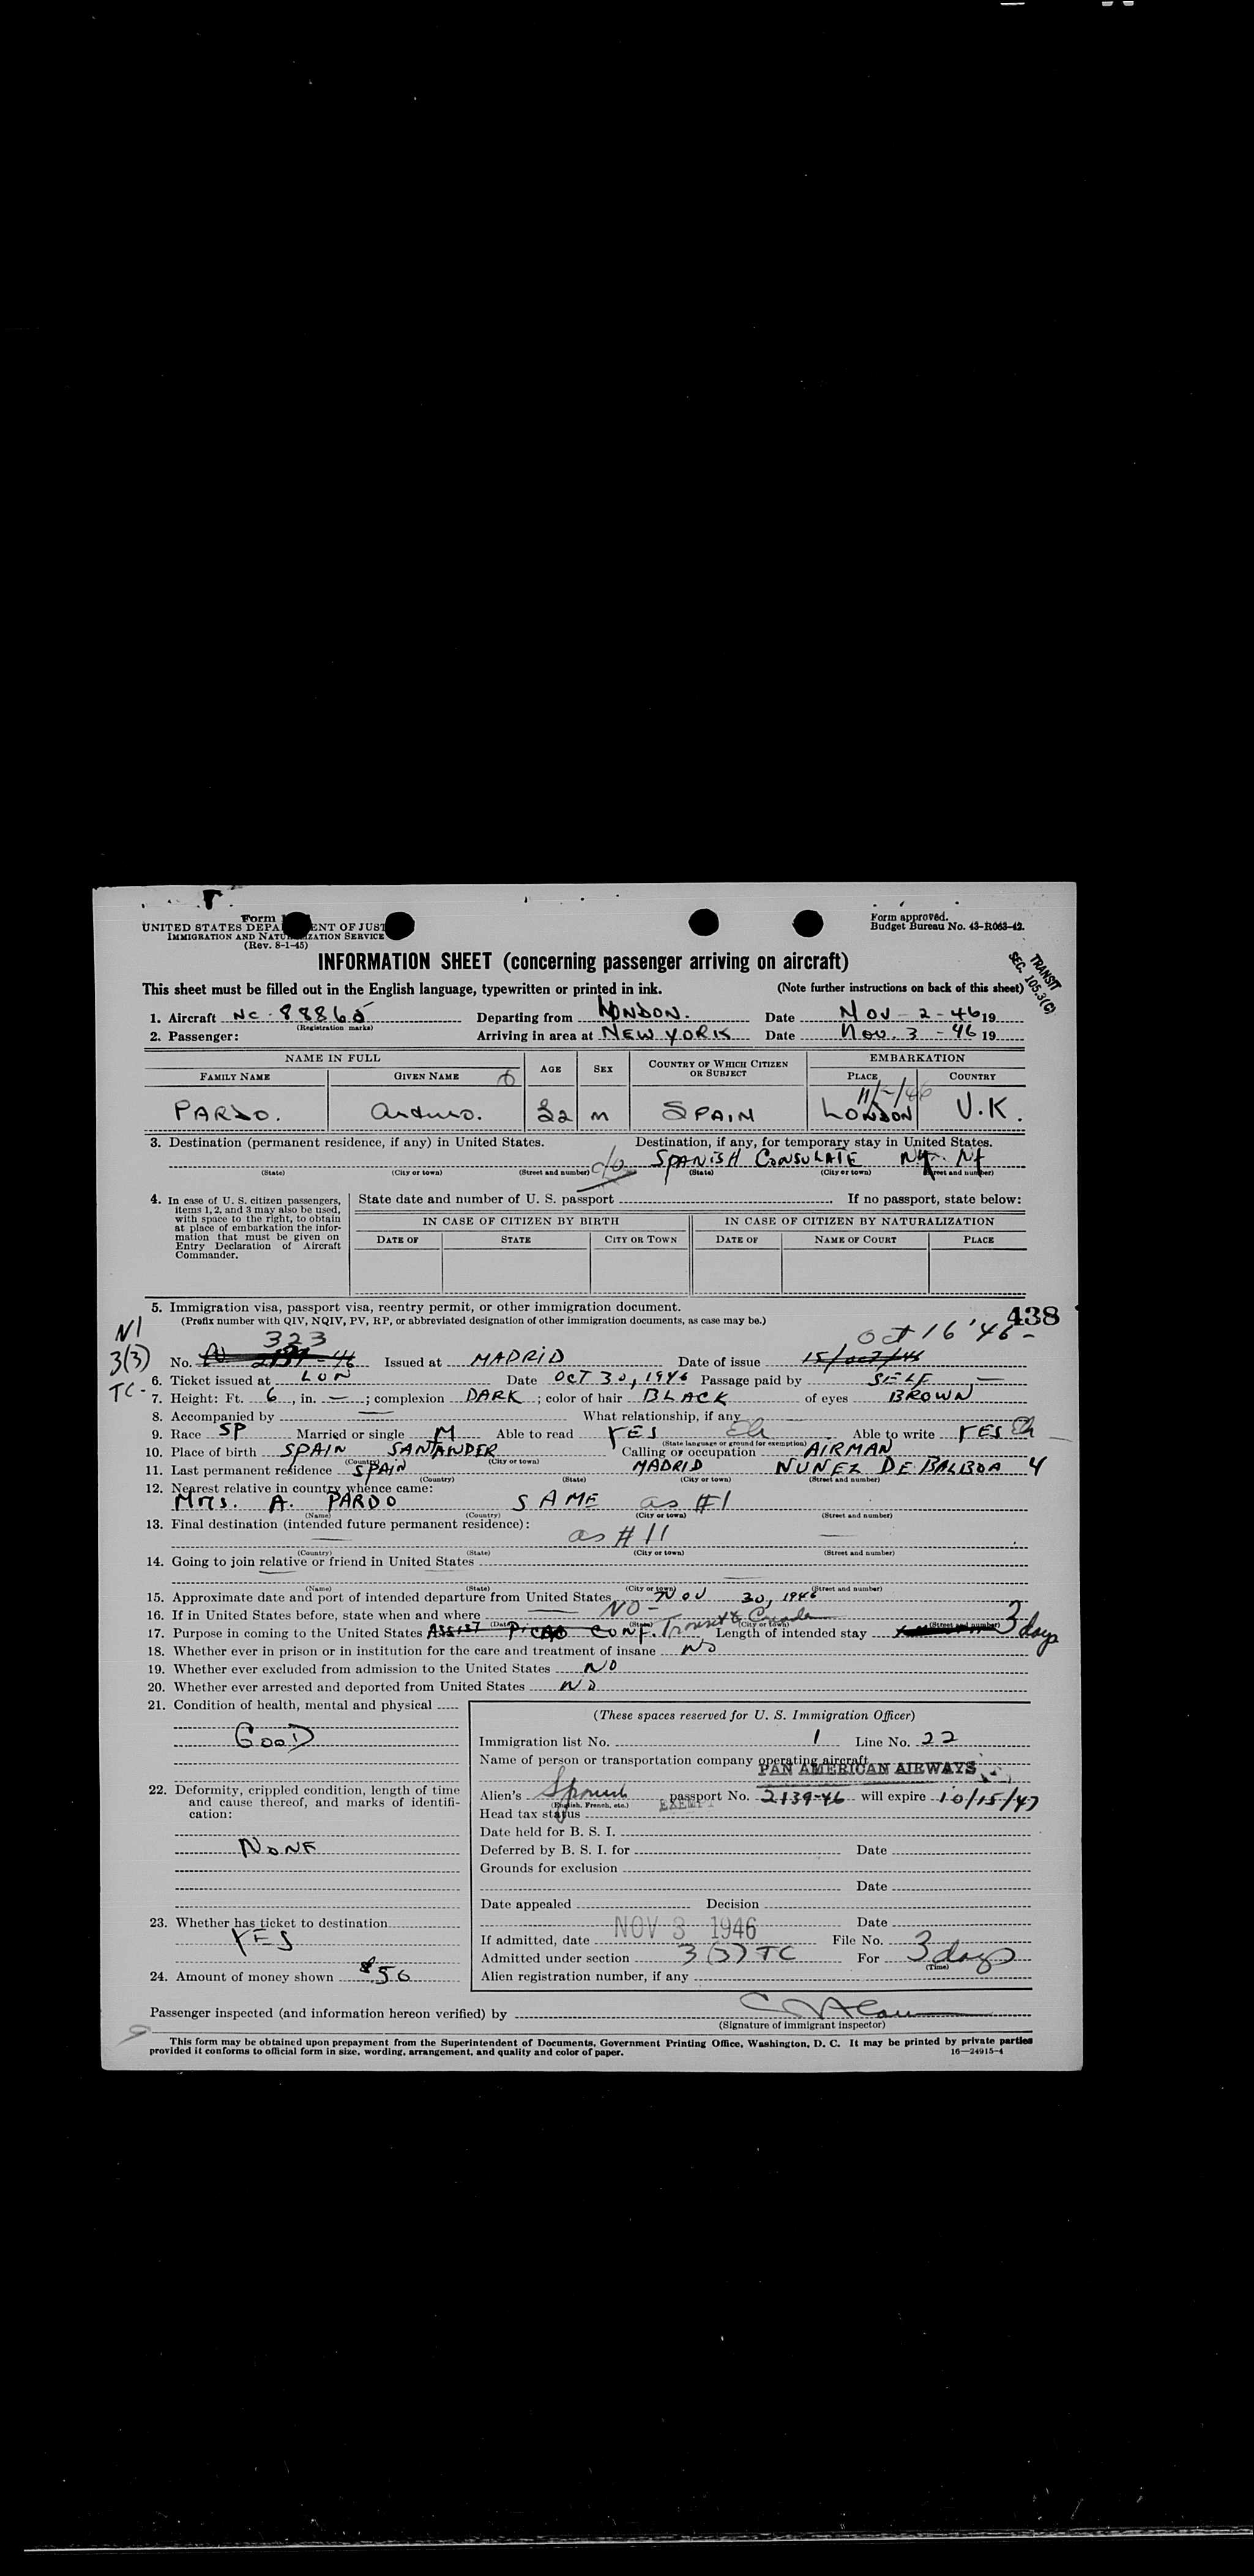 Form
UNITED STATES DEPA ENT OF JUST
IMMIGRATION AND NATU ZATION SERVICE
(Rev. 8-1-45)
Form approved.
Budget Bureau No. 43-R063-42.
INFORMATION SHEET (concerning passenger arriving on aircraft)
TRANSIT
SEC. 105.3(C)
This sheet must be filled out in the English language, typewritten or printed in ink. (Note further instructions on back of this sheet)
1. Aircraft NC-88865 Departing from LONDON. Date NOV-2-46 19
(Registration marks)
2. Passenger: Arriving in area at NEW YORK Date Nov. 3-46 19
NAME IN FULL AGE SEX COUNTRY OF WHICH CITIZEN OR SUBJECT EMBARKATION
FAMILY NAME GIVEN NAME PLACE COUNTRY
PARDO. Arturo. 32 M SPAIN LONDON U.K.
3. Destination (permanent residence, if any) in United States. Destination, if any, for temporary stay in United States.
c/o SPANISH CONSULATE NY. NY
(State) (City or town) (Street and number) (State) (City or town) (Street and number)
4. In case of U. S. citizen passengers, items 1, 2, and 3 may also be used, with space to the right, to obtain at place of embarkation the information that must be given on Entry Declaration of Aircraft Commander.
State date and number of U. S. passport If no passport, state below:
IN CASE OF CITIZEN BY BIRTH IN CASE OF CITIZEN BY NATURALIZATION
DATE OF STATE CITY OR TOWN DATE OF NAME OF COURT PLACE
5. Immigration visa, passport visa, reentry permit, or other immigration document.
(Prefix number with QIV, NQIV, PV, RP, or abbreviated designation of other immigration documents, as case may be.)
438
NI
3(3)
TC-
323 Oct 16 '46-
No. 2139-46 Issued at MADRID Date of issue 15/OCT/46
6. Ticket issued at LON Date OCT 30, 1946 Passage paid by SELF
7. Height: Ft. 6, in. —; complexion DARK; color of hair BLACK of eyes BROWN
8. Accompanied by — What relationship, if any
9. Race SP Married or single M Able to read YES Able to write YES
(State language or ground for exemption)
10. Place of birth SPAIN SANTANDER Calling or occupation AIRMAN
(Country) (City or town)
11. Last permanent residence SPAIN MADRID NUNEZ DE BALBOA 4
(Country) (State) (City or town) (Street and number)
12. Nearest relative in country whence came:
Mrs. A. PARDO SAME as #1
(Name) (Country) (City or town) (Street and number)
13. Final destination (intended future permanent residence):
as #11
(Country) (State) (City or town) (Street and number)
14. Going to join relative or friend in United States
(Name) (State) (City or town) (Street and number)
15. Approximate date and port of intended departure from United States NOV 30, 1946
16. If in United States before, state when and where NO-
(Date) (State) (City or town) (Street and number)
17. Purpose in coming to the United States ASSIST PICAO CONF. Transit to Canada Length of intended stay 3 days
18. Whether ever in prison or in institution for the care and treatment of insane NO
19. Whether ever excluded from admission to the United States NO
20. Whether ever arrested and deported from United States NO
21. Condition of health, mental and physical
GOOD
22. Deformity, crippled condition, length of time and cause thereof, and marks of identification:
NONE
23. Whether has ticket to destination
YES
24. Amount of money shown $50
(These spaces reserved for U. S. Immigration Officer)
Immigration list No. 1 Line No. 22
Name of person or transportation company operating aircraft
PAN AMERICAN AIRWAYS
Alien's Spanish passport No. 2139-46 will expire 10/15/47
(English, French, etc.)
Head tax status EXEMPT
Date held for B. S. I.
Deferred by B. S. I. for Date
Grounds for exclusion
Date
Date appealed Decision
Date
If admitted, date NOV 3 1946 File No.
Admitted under section 3(3) TC For 3 days
(Time)
Alien registration number, if any
Passenger inspected (and information hereon verified) by
(Signature of immigrant inspector)
This form may be obtained upon prepayment from the Superintendent of Documents, Government Printing Office, Washington, D. C. It may be printed by private parties
provided it conforms to official form in size, wording, arrangement, and quality and color of paper. 16—24915-4